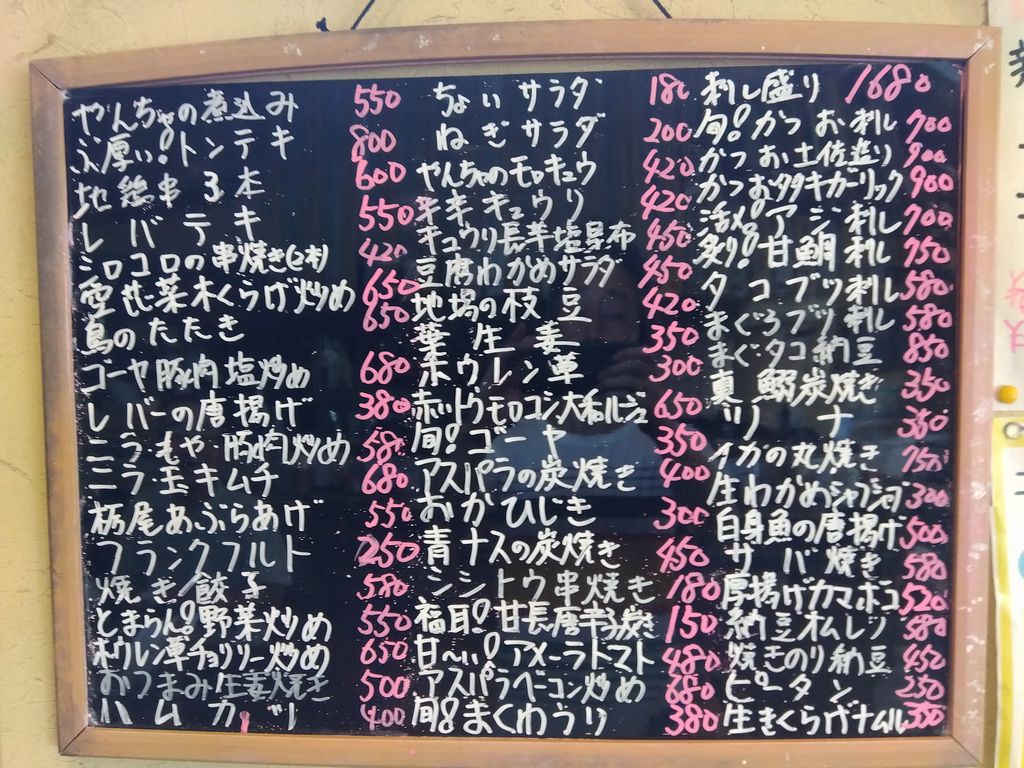 やんちゃの煮込み 550
ぶ厚い!トンテキ 800
地鶏串3本 600
レバテキ 550
シロコロの串焼き(2本) 420
雲丹菜木くらげ炒め 650
鳥のたたき 650
ゴーヤ豚肉塩炒め 680
レバーの唐揚げ 380
ニラもや豚肉炒め 580
ニラ玉キムチ 680
栃尾あぶらあげ 550
フランクフルト 250
焼き餃子 580
とまらん!野菜炒め 550
ホウレン草チョリソー炒め 650
おつまみ生姜焼き 500
ハムカツ 400
ちょいサラダ 180
ねぎサラダ 200
やんちゃのモロキュウ 420
キュウリ 420
キュウリ長芋塩昆布 450
豆腐わかめサラダ 450
地場の枝豆 420
葉生姜 350
ホウレン草 300
赤いトウモロコシ大和ルージュ 650
旬!ゴーヤ 350
アスパラの炭焼き 400
おかひじき 300
青ナスの炭焼き 450
シシトウ串焼き 180
福耳!甘長唐辛子炭き 150
甘〜い!アメーラトマト 480
アスパラベーコン炒め 680
旬!まくわうり 380
刺し盛り 1680
旬!かつお刺し 900
かつお土佐造り 900
かつおタタキガーリック 900
活〆!アジ刺し 700
炙り!甘鯛刺し 750
タコブツ刺し 580
まぐろブツ刺し 580
まぐタコ納豆 850
真鰯炭焼き 350
ツナ 350
イカの丸焼き 750
生わかめシャブシャブ 300
白身魚の唐揚げ 500
サバ焼き 580
厚揚げカマボコ 520
納豆オムレツ 580
焼きのり納豆 450
ピータン 250
生きくらげナムル 350